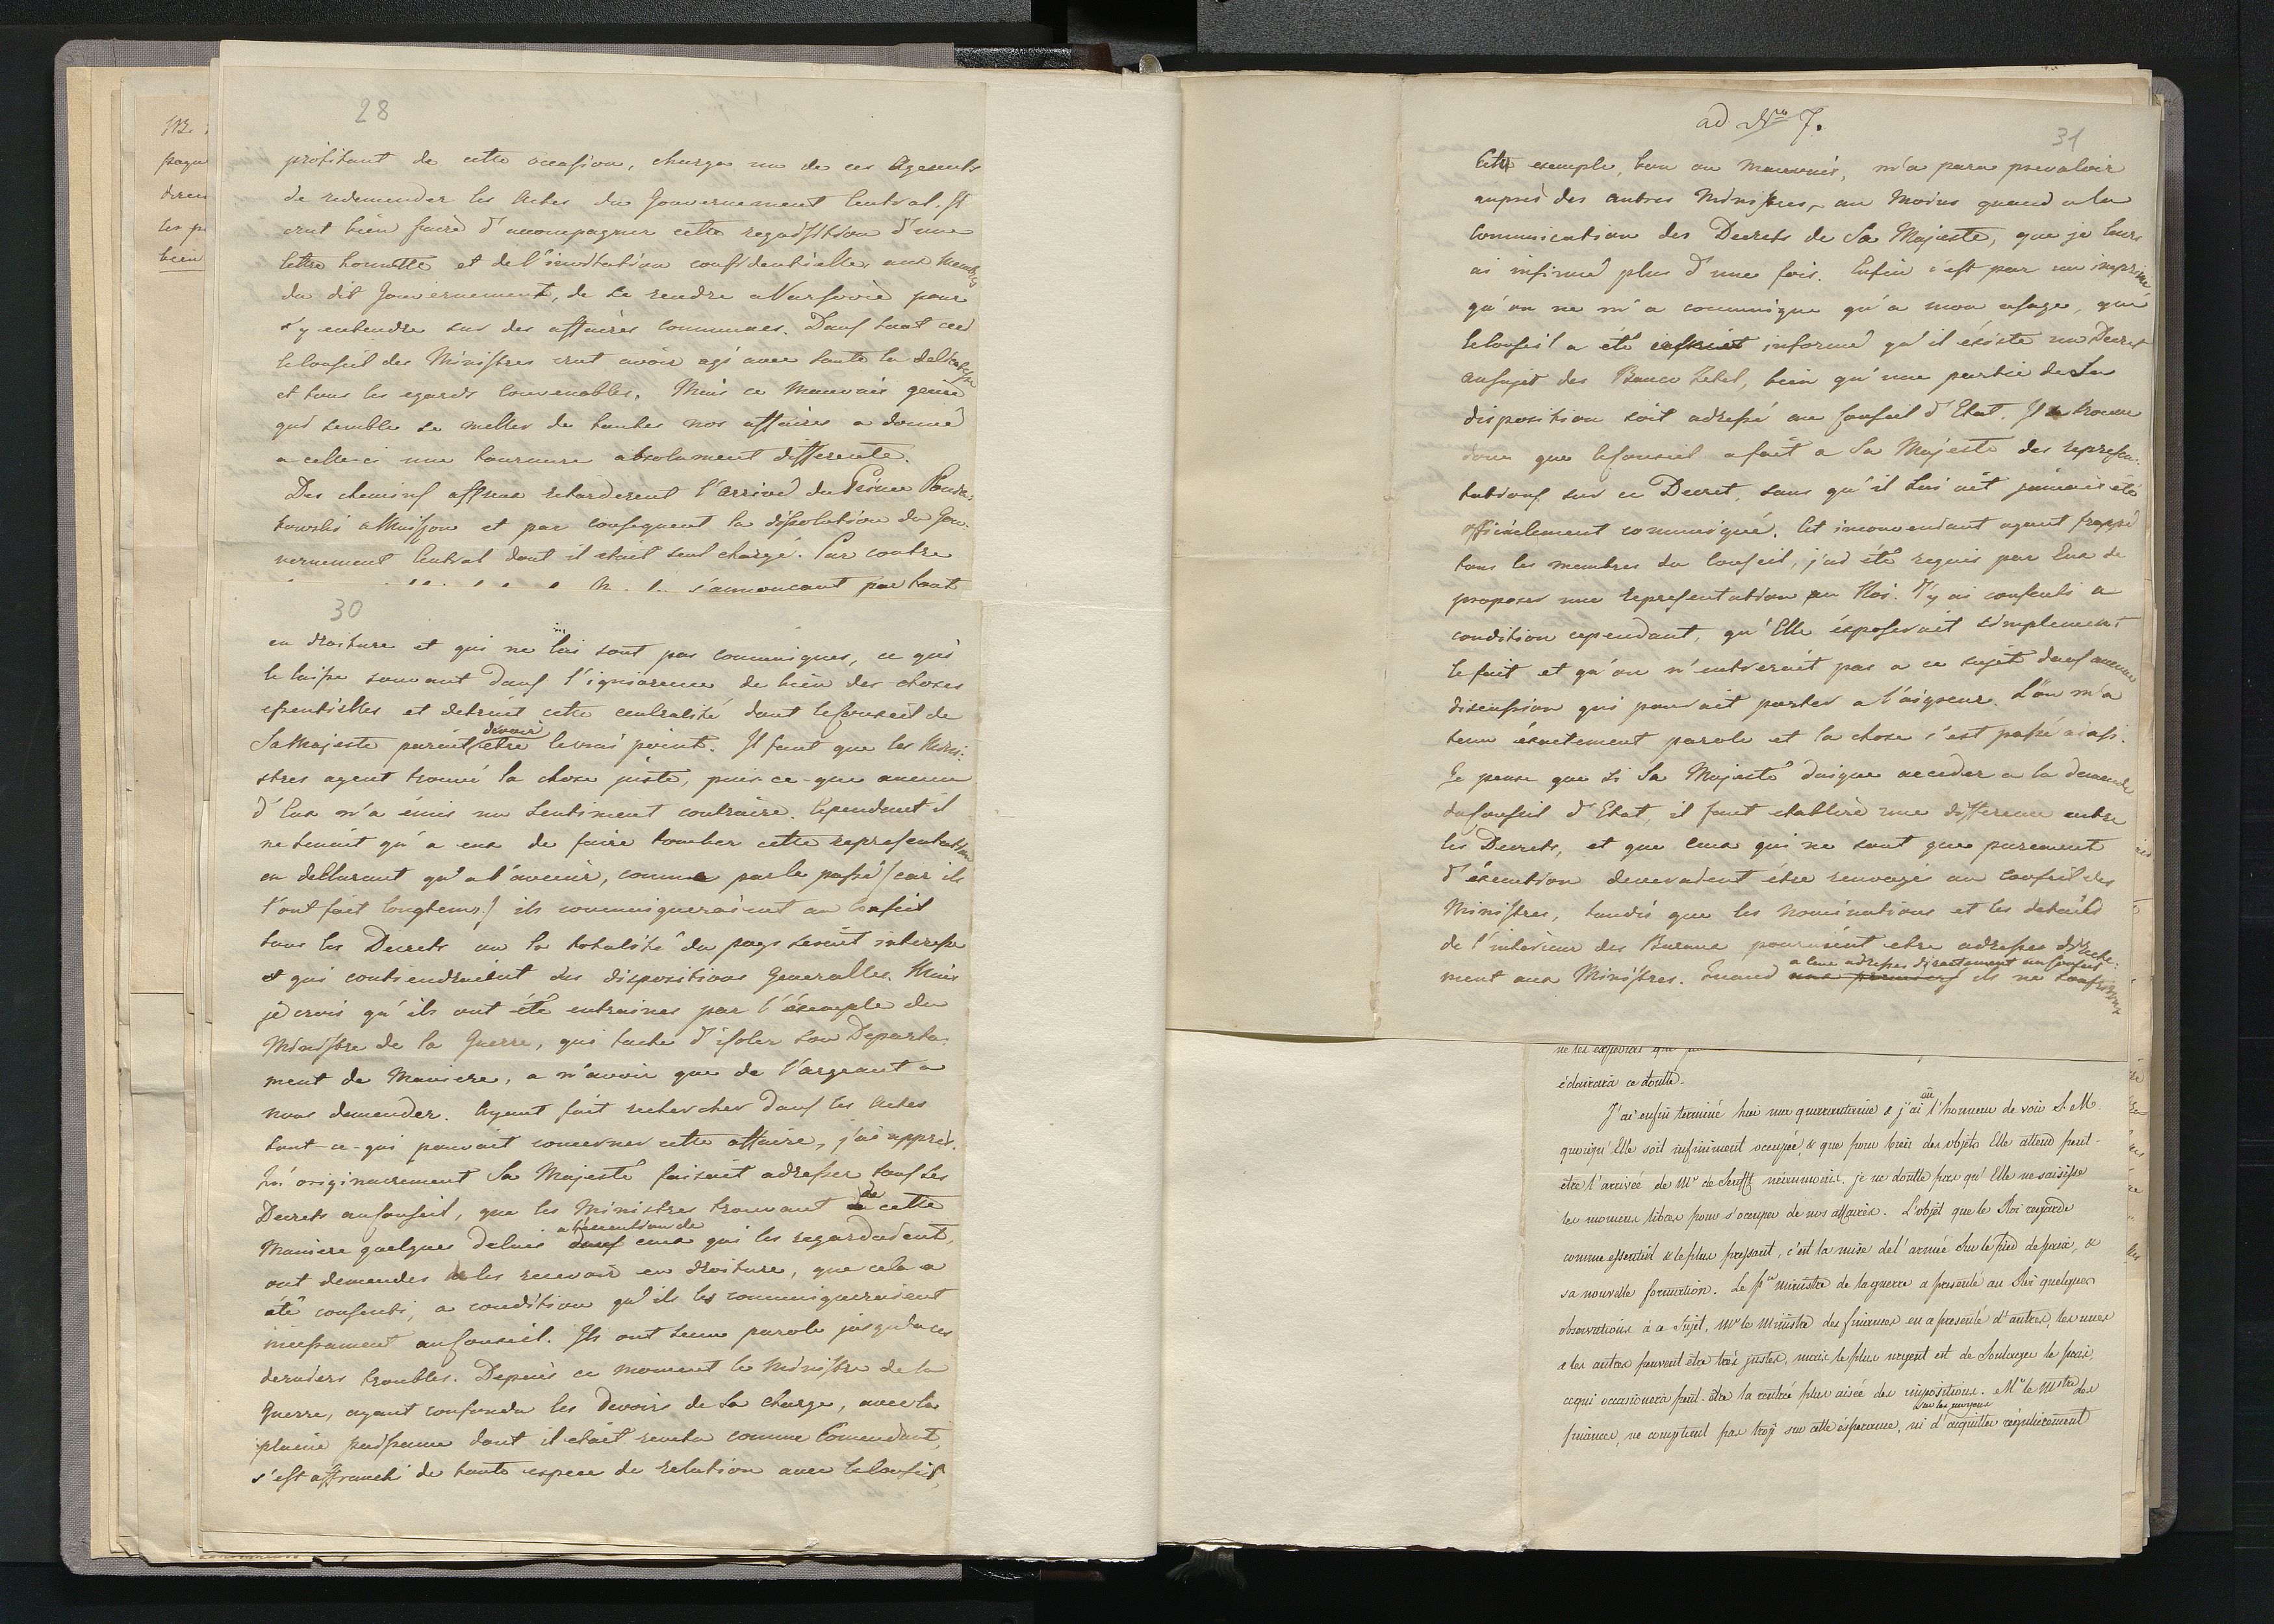 28
profitant de cette occasion, charga un de ces Agents
de redemender les Actes du Gouvernement Central. Il
crut bien faire d'accompagner cette requisition d'une
lettre honnette et de l'invitation confidentielle aux Membres
du dit Gouvernement, de se rendre a Varsovie pour
s'y entendre sur des affaires communes. Dans tout ceci
le Conseil des Ministres crut avoir agi avec toute la delicatesse
et tous les egards convenables. Mais ce mauvais genie
qui semble se meller de toutes nos affaires a donné
a celle-ci une tournure absolument differente.
Des chemins affreux retarderent l'arrivé du Prince Ponia-
towski et par consequent la dissolution du Gou-
vernement Central dont il etait seul chargé. Par contre
s'annoncant par tout
30
en droiture et qui ne lui sont pas communiques, ce qui
le laisse souvant dans l'ignorence de bien des choses
essentielles et detruit cette centralité dont le Conseil de
Sa Majeste parait devoir etre le vrai point. Il faut que les Mini-
stres ayent trouvé la chose juste, puis-ce-que aucun
d'Eux n'a émis un sentiment contraire. Cependant il
ne tenait qu'a eux de faire tomber cette representation
en declarant qu'a l'avenir, comme par le passé (car ils
l'ont fait longtems) ils communiqueraient au Conseil
tous les Decrets ou la totalité du pays serait interesse
et qui contiendraient des dispositions Generalles. Mais
je crois qu'ils ont été entraines par l'éxemple du
Ministre de la Guerre, qui tache d'isoler son Departe-
ment de Maniere, a n'avoir que de l'argeant a
nous demender. Ayant fait rechercher dans les Actes
tout-ce-qui pouvait concerner cette affaire, j'ai appris
qu'originairement Sa Majesté faisait adresser tous les
Decrets au Conseil, que les Ministres trouvant de cette
Maniere quelques delais a l'éxecution de ceux qui les regardaient,
ont demendes de les recevoir en droiture, que cela a
été consenti, a condition qu'ils les communiqueraient
incessament au Conseil. Ils ont tenu parole jusqu'a ces
derniers troubles. Depuis ce moment le Ministre de la
Guerre, ayant confondu les Devoirs de sa charge, avec la
plaine puissance dont il etait revetu comme Comendant,
s'est affranchi de toute espece de relation avec le Conseil,
ad Nro 7.
31
Cet exemple, bon ou mauvais, m'a paru prevaloir
aupres des autres Ministres, au moins quand a la
communication des Decrets de Sa Majeste, que je leurs
ai insinué plus d'une fois. Enfin c'est par un imprimé
qu'on ne m'a communique qu'a mon usage, que
le Conseil a été informé qu'il éxiste un Decret
au sujet des Banco Zetel, bien qu'une partie de sa
disposition soit adressé au Conseil d'Etat. Il se trouve
donc que le Conseil a fait a Sa Majesté des represen-
tations sur ce Decret, sans qu'il lui ait jamais eté
officielement communiqué. Cet inconveniant ayant frappé
tous les membres du Conseil, j'ai été requis par Eux de
proposer une representation au Roi. J'y ai consenti a
condition cependant, qu'Elle éxposerait simplement
le fait et qu'on n'entrerait pas a ce sujet dans aucune
discussion qui pourait porter a l'aigreur. L'on m'a
tenu éxactement parole et la chose s'est passé ainsi.
Je pense que si Sa Majesté daigne acceder a la demande
du Conseil d'Etat, il faut etablire une difference entre
les Decrets, et que ceux qui ne sont que purement
d'éxecution devevaient étre renvoyé au Conseil des
Ministres, tandis que les nominations et les details
de l'interieur des Bureaux pouraient etre adresses directe-
ment aux Ministres. Quand a leur adresses directement au Conseil ils ne
éclairera ce doutte.
J'ai enfin terminé hier ma quarantaine & j'ai eû l'honneur de voir S. M.
quoiqu'Elle soit infiniment occupée, & que pour bien des objets Elle attend peut-
être l'arrivée de Mr de Senfft néanmoins, je ne doutte pas qu'Elle ne saisisse
les momens libres pour s'occuper de nos affaires. L'objet que le Roi regarde
comme essentiel & le plus pressant, c'est la mise de l'armée sur le pied de paix, &
sa nouvelle formation. Le Pce ministre de la guerre a presenté au Roi quelques
observations à ce sujet, Mr le Ministre des finances en a presenté d'autres, les unes
& les autres peuvent être très justes, mais le plus urgent est de soulager le païs,
cequi occasionera peut-être la rentrée plus aisée des impositions. Mr le Mstre des
finances, ne comptent pas trop sur cette ésperance, ni sur les moyens d'acquitter régulierement